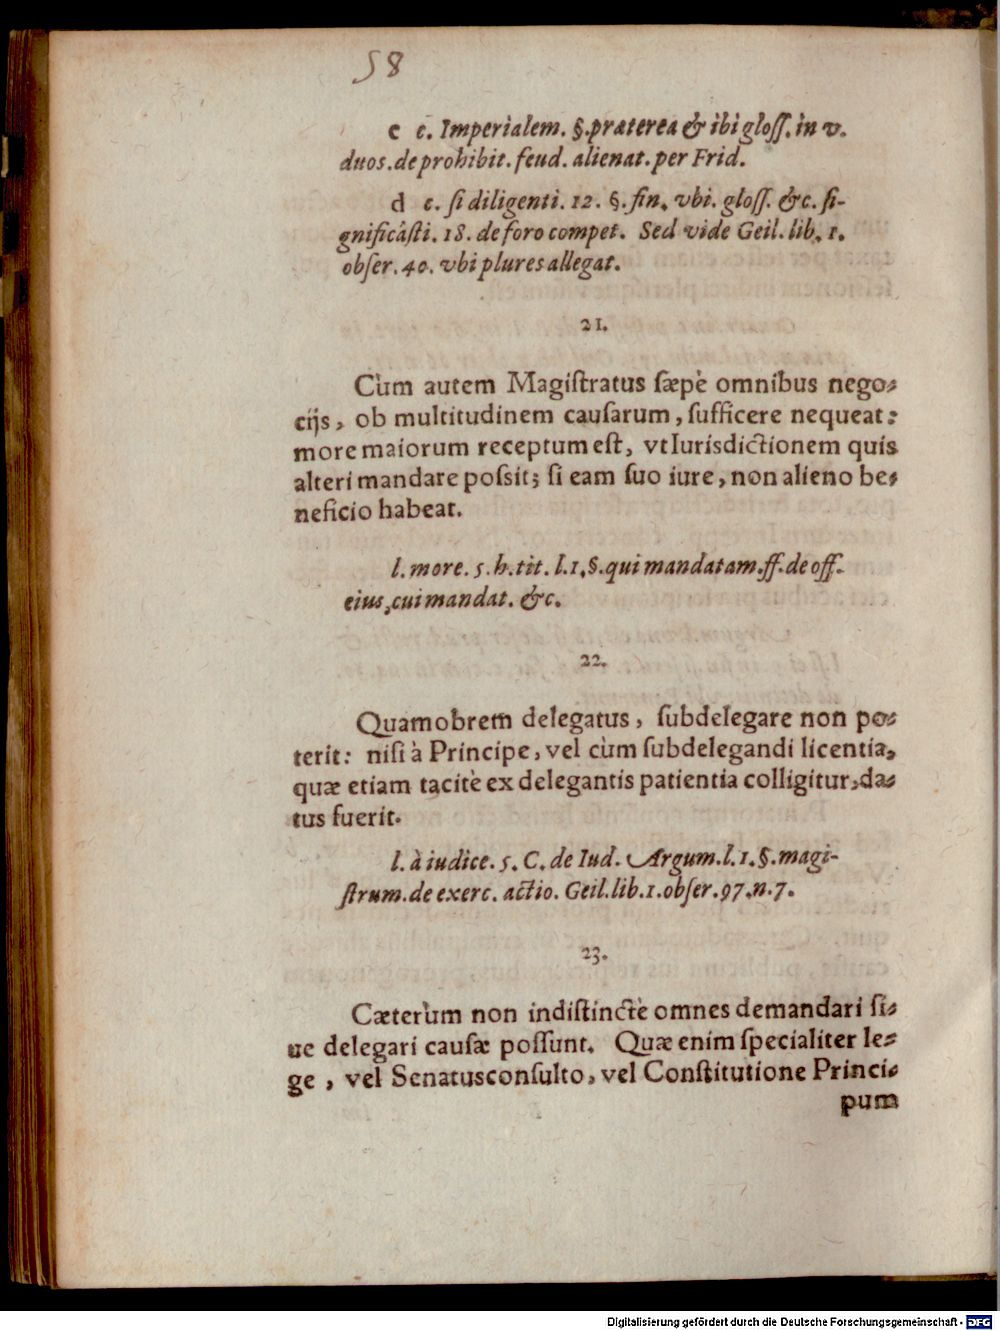 58
c c. Imperialem. §. præterea & ibi gloſſ. in v.
duos. de prohibit. feud. alienat. per Frid.
d c. ſi diligenti. 12. §. fin. vbi. gloſſ. &c. ſi-
gnificâſti. 18. de foro compet. Sed vide Geil. lib. 1.
obſer. 40. vbi plures allegat.
21.
Cùm autem Magiſtratus ſæpè omnibus nego-
cijs, ob multitudinem cauſarum, ſufficere nequeat:
more maiorum receptum eſt, vt Iurisdictionem quis
alteri mandare poſsit; ſi eam ſuo iure, non alieno be-
neficio habeat.
l. more. 5. h. tit. l. 1. §. qui mandatam. ff. de off.
eius, cui mandat. &c.
22.
Quamobrem delegatus, ſubdelegare non po-
terit: niſi à Principe, vel cùm ſubdelegandi licentia,
quæ etiam tacitè ex delegantis patientia colligitur, da-
tus fuerit.
l. à iudice. 5. C. de Iud. Argum. l. 1. §. magi-
ſtrum. de exerc. actio. Geil. lib. 1. obſer. 97. n. 7.
23.
Cæterùm non indiſtinctè omnes demandari ſi-
ue delegari cauſæ poſſunt. Quæ enim ſpecialiter le-
ge, vel Senatusconſulto, vel Conſtitutione Princi-
pum
Digitalisierung gefördert durch die Deutsche Forschungsgemeinschaft - DFG